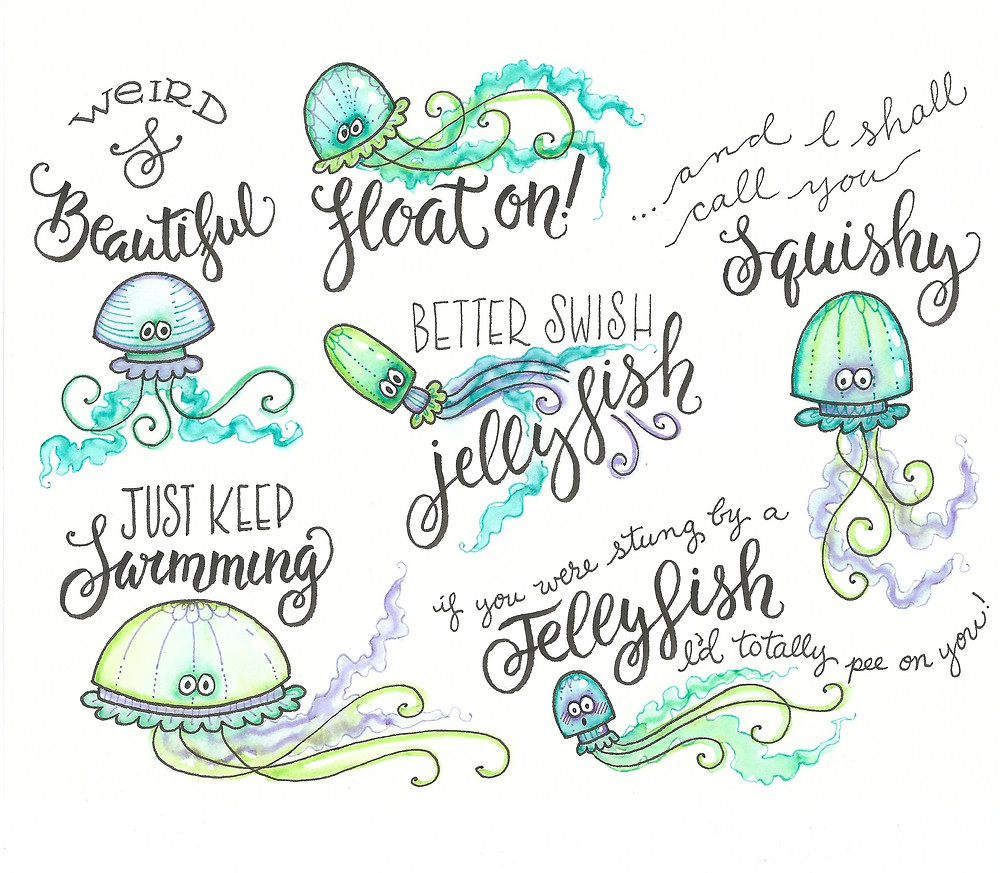 WEIRD
&
Beautiful
Float on!
...and I shall
call you
Squishy
BETTER SWISH
jellyfish
JUST KEEP
Swimming
if you were stung by a
Jellyfish
I'd totally pee on you!